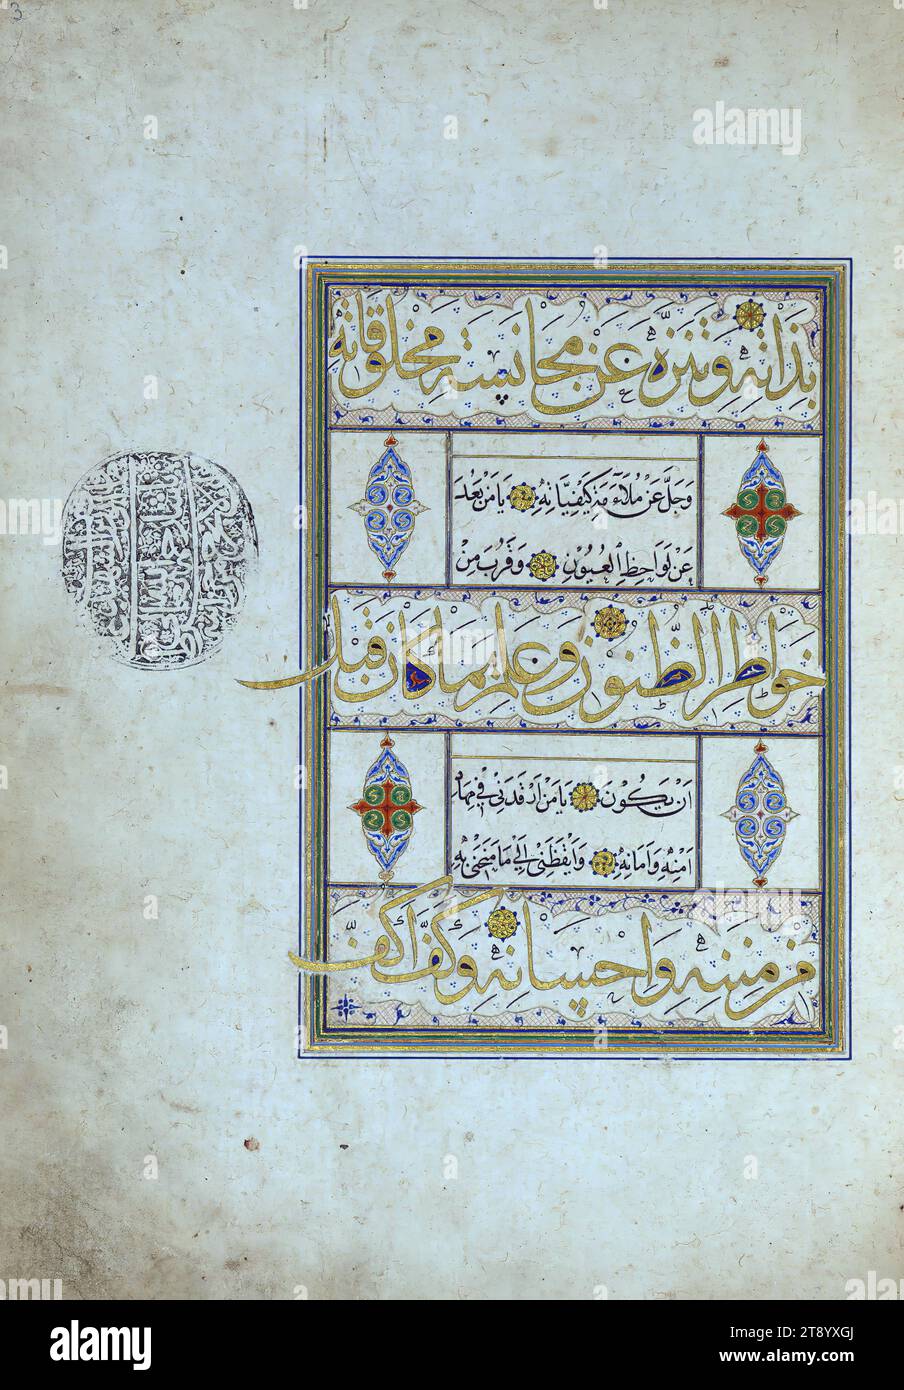 3
بذاته وتنزه عن مجانسة مخلوقاته
وجل عن ملاءمة كيفياته يا من بعد
عن لواحظ العيون وقرب من
خواطر الظنون وعلم بما كان قبل
ان يكون يا من ارقدني في مهاد
امنه وامانه وايقظني الى ما منحني به
من مننه واحسانه وكف اكف
alamy
alamy
Image ID: 2T8YXGJ
www.alamy.com